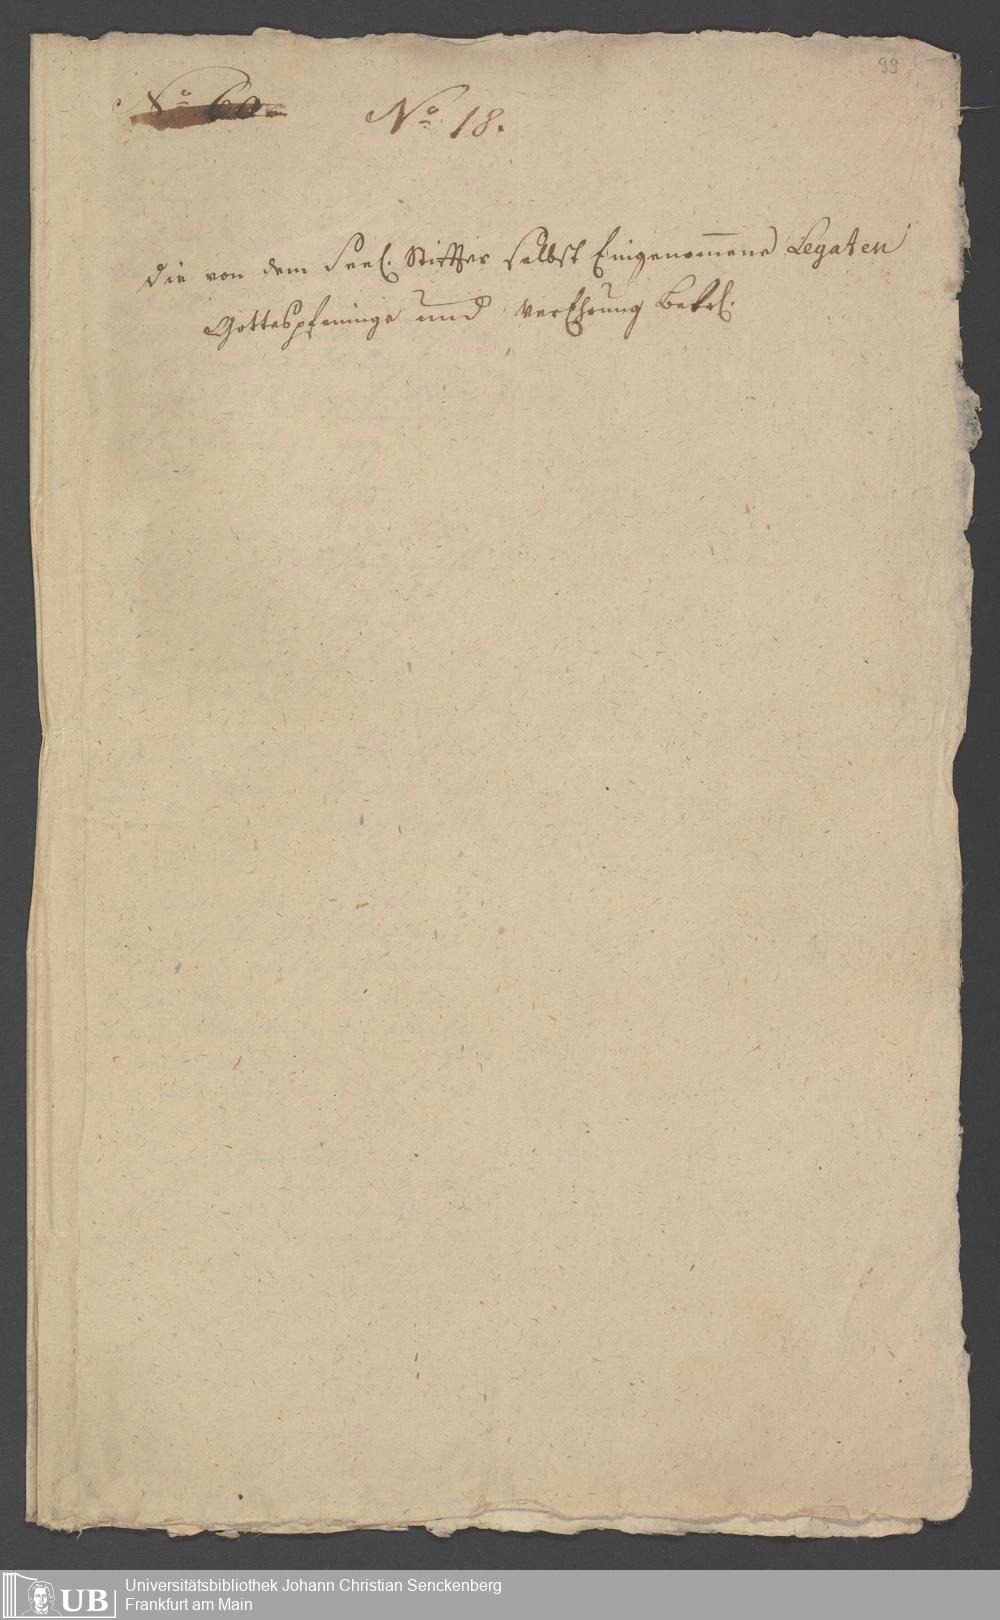 99
No 60. No 18.
die von dem Seel. Stiffter selbst Eingenommene Legaten
Gottespfeninge und VerEhrung Betrl.
UB Universitätsbibliothek Johann Christian Senckenberg
Frankfurt am Main